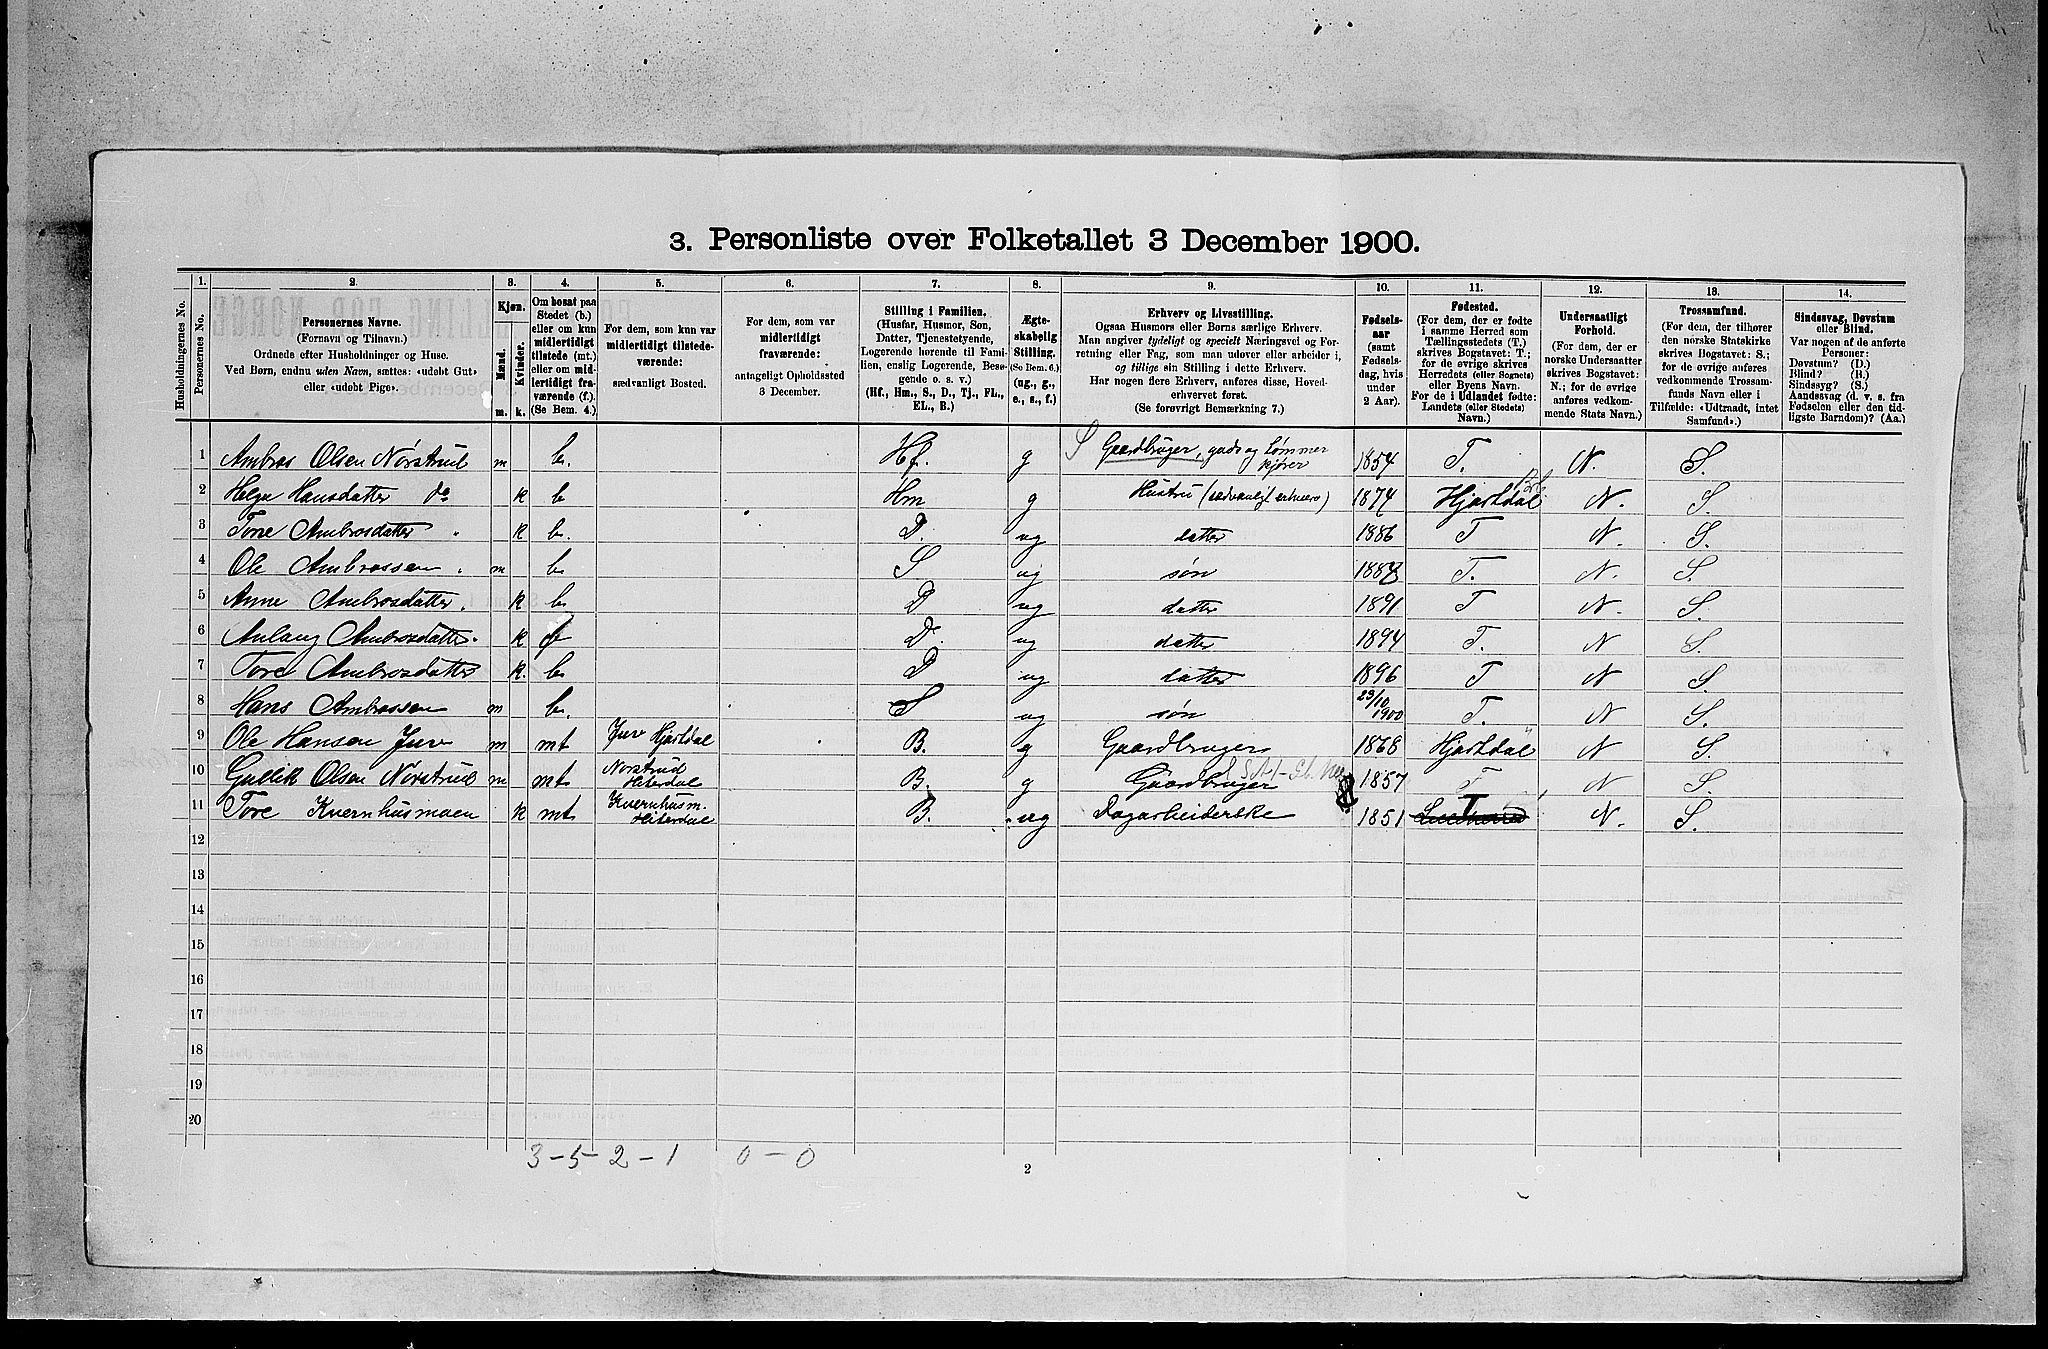 3. Personliste over Folketallet 3 December 1900.
1. 2. 3. 4. 5. 6. 7. 8. 9. 10. 11. 12. 13. 14.
Husholdningernes No.
Personernes No.
Personernes Navne.
(Fornavn og Tilnavn.)
Ordnede efter Husholdninger og Huse.
Ved Børn, endnu uden Navn, sættes: «udøbt Gut»
eller «udøbt Pige».
Kjøn.
Mænd.
Kvinder.
m. k.
Om bosat paa
Stedet (b.)
eller om kun
midlertidigt
tilstede (mt.)
eller om mid-
lertidigt fra-
værende (f.).
(Se Bem. 4.)
For dem, som kun var
midlertidigt tilstede-
værende:
sædvanligt Bosted.
For dem, som var
midlertidigt
fraværende:
antageligt Opholdssted
3 December.
Stilling i Familien.
(Husfar, Husmor, Søn,
Datter, Tjenestetyende,
Logerende hørende til Fami-
lien, enslig Logerende, Besø-
gende o. s. v.)
(Hf., Hm., S., D., Tj., FL.,
EL., B.)
Ægte-
skabelig
Stilling.
(Se Bem. 6.)
(ug., g.,
e., s., f.)
Erhverv og Livsstilling.
Ogsaa Husmors eller Børns særlige Erhverv.
Man angiver tydeligt og specielt Næringsvei og For-
retning eller Fag, som man udøver eller arbeider i,
og tillige sin Stilling i dette Erhverv.
Har nogen flere Erhverv, anføres disse, Hoved-
erhvervet først.
(Se forøvrigt Bemærkning 7.)
Fødsels-
aar
(samt
Fødsels-
dag, hvis
under
2 Aar).
Fødested.
(For dem, der er fødte
i samme Herred som
Tællingsstedets (T.)
skrives Bogstavet: T.;
for de øvrige skrives
Herredets (eller Sognets)
eller Byens Navn.
For de i Udlandet fødte:
Landets (eller Stedets)
Navn.)
Undersaatligt
Forhold.
(For dem, der er
norske Undersaatter
skrives Bogstavet:
N.; for de øvrige
anføres vedkom-
mende Stats Navn.)
Trossamfund.
(For dem, der tilhører
den norske Statskirke
skrives Bogstavet: S.;
for de øvrige anføres
vedkommende Trossam-
funds Navn eller i
Tilfælde: «Udtraadt, intet
Samfund».)
Sindssvag, Døvstum
eller Blind.
Var nogen af de anførte
Personer:
Døvstum? (D.)
Blind? (B.)
Sindssyg? (S.)
Aandssvag (d. v. s. fra
Fødselen eller den tid-
ligste Barndom)? (Aa.)
1 Ambros Olsen Nórstrud m b. Hf. g S Gaardbruger, gads og tømmer kjører 1854 T. N. S.
2 Helge Hansdatter do k b Hm g Hustru (sædvanligt erhverv) 1874 Hjartdal N. S.
3 Tone Ambrosdatter " k b. D. ug datter 1886 T N. S.
4 Ole Ambrossen " m b S ug søn 1888 T. N. S.
5 Anne Ambrosdatter. k b. D ug datter 1891 T N. S.
6 Aslaug Ambrosdatter. k b D. ug datter 1894 T. N S.
7 Tore Ambrosdatter k. b D ug datter 1896 T N S.
8 Hans Ambrossen m b. S ug søn 23/10 1900 T. N S.
9 Ole Hansen Juv m mt Juv Hjartdal B. g Gaardbruger 1868 Hjartdal N S.
10 Gullik Olsen Nórstrud m mt Norstrud Hiterdal B. g Gaardbruger 1857 T N S.
11 Tore Kvernhusmoen k mt Kvernhusm. Hiterdal B. ug Dagarbeiderske 1851 T N. S.
12
13
14
15
16
17
18
19
20
3-5-2-1 0-0
2